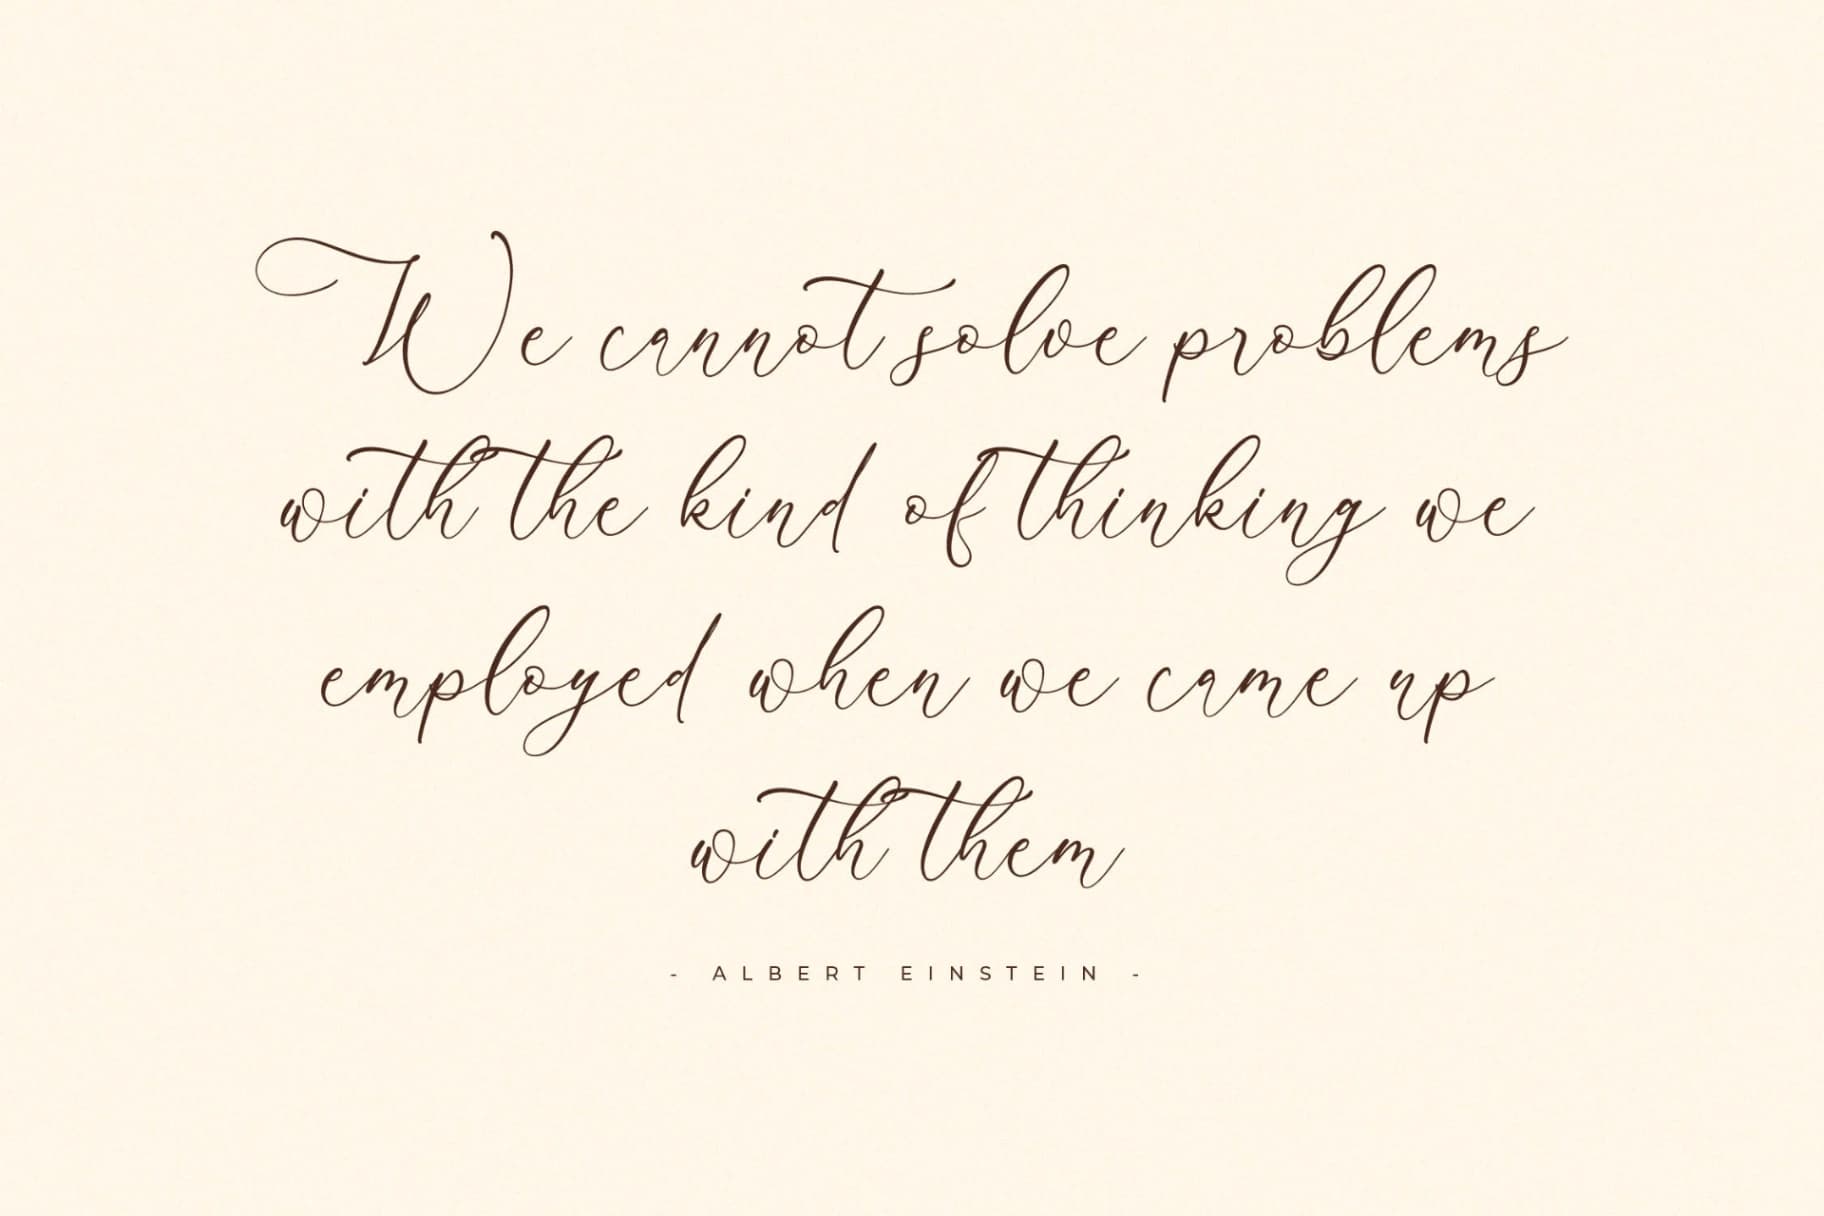 We cannot solve problems
with the kind of thinking we
employed when we came up
with them
- ALBERT EINSTEIN -